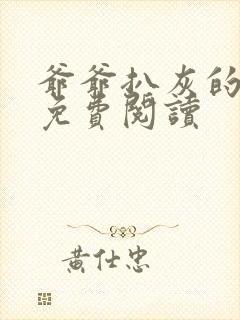 爺爺扒灰的
免費閱讀
黃仕忠